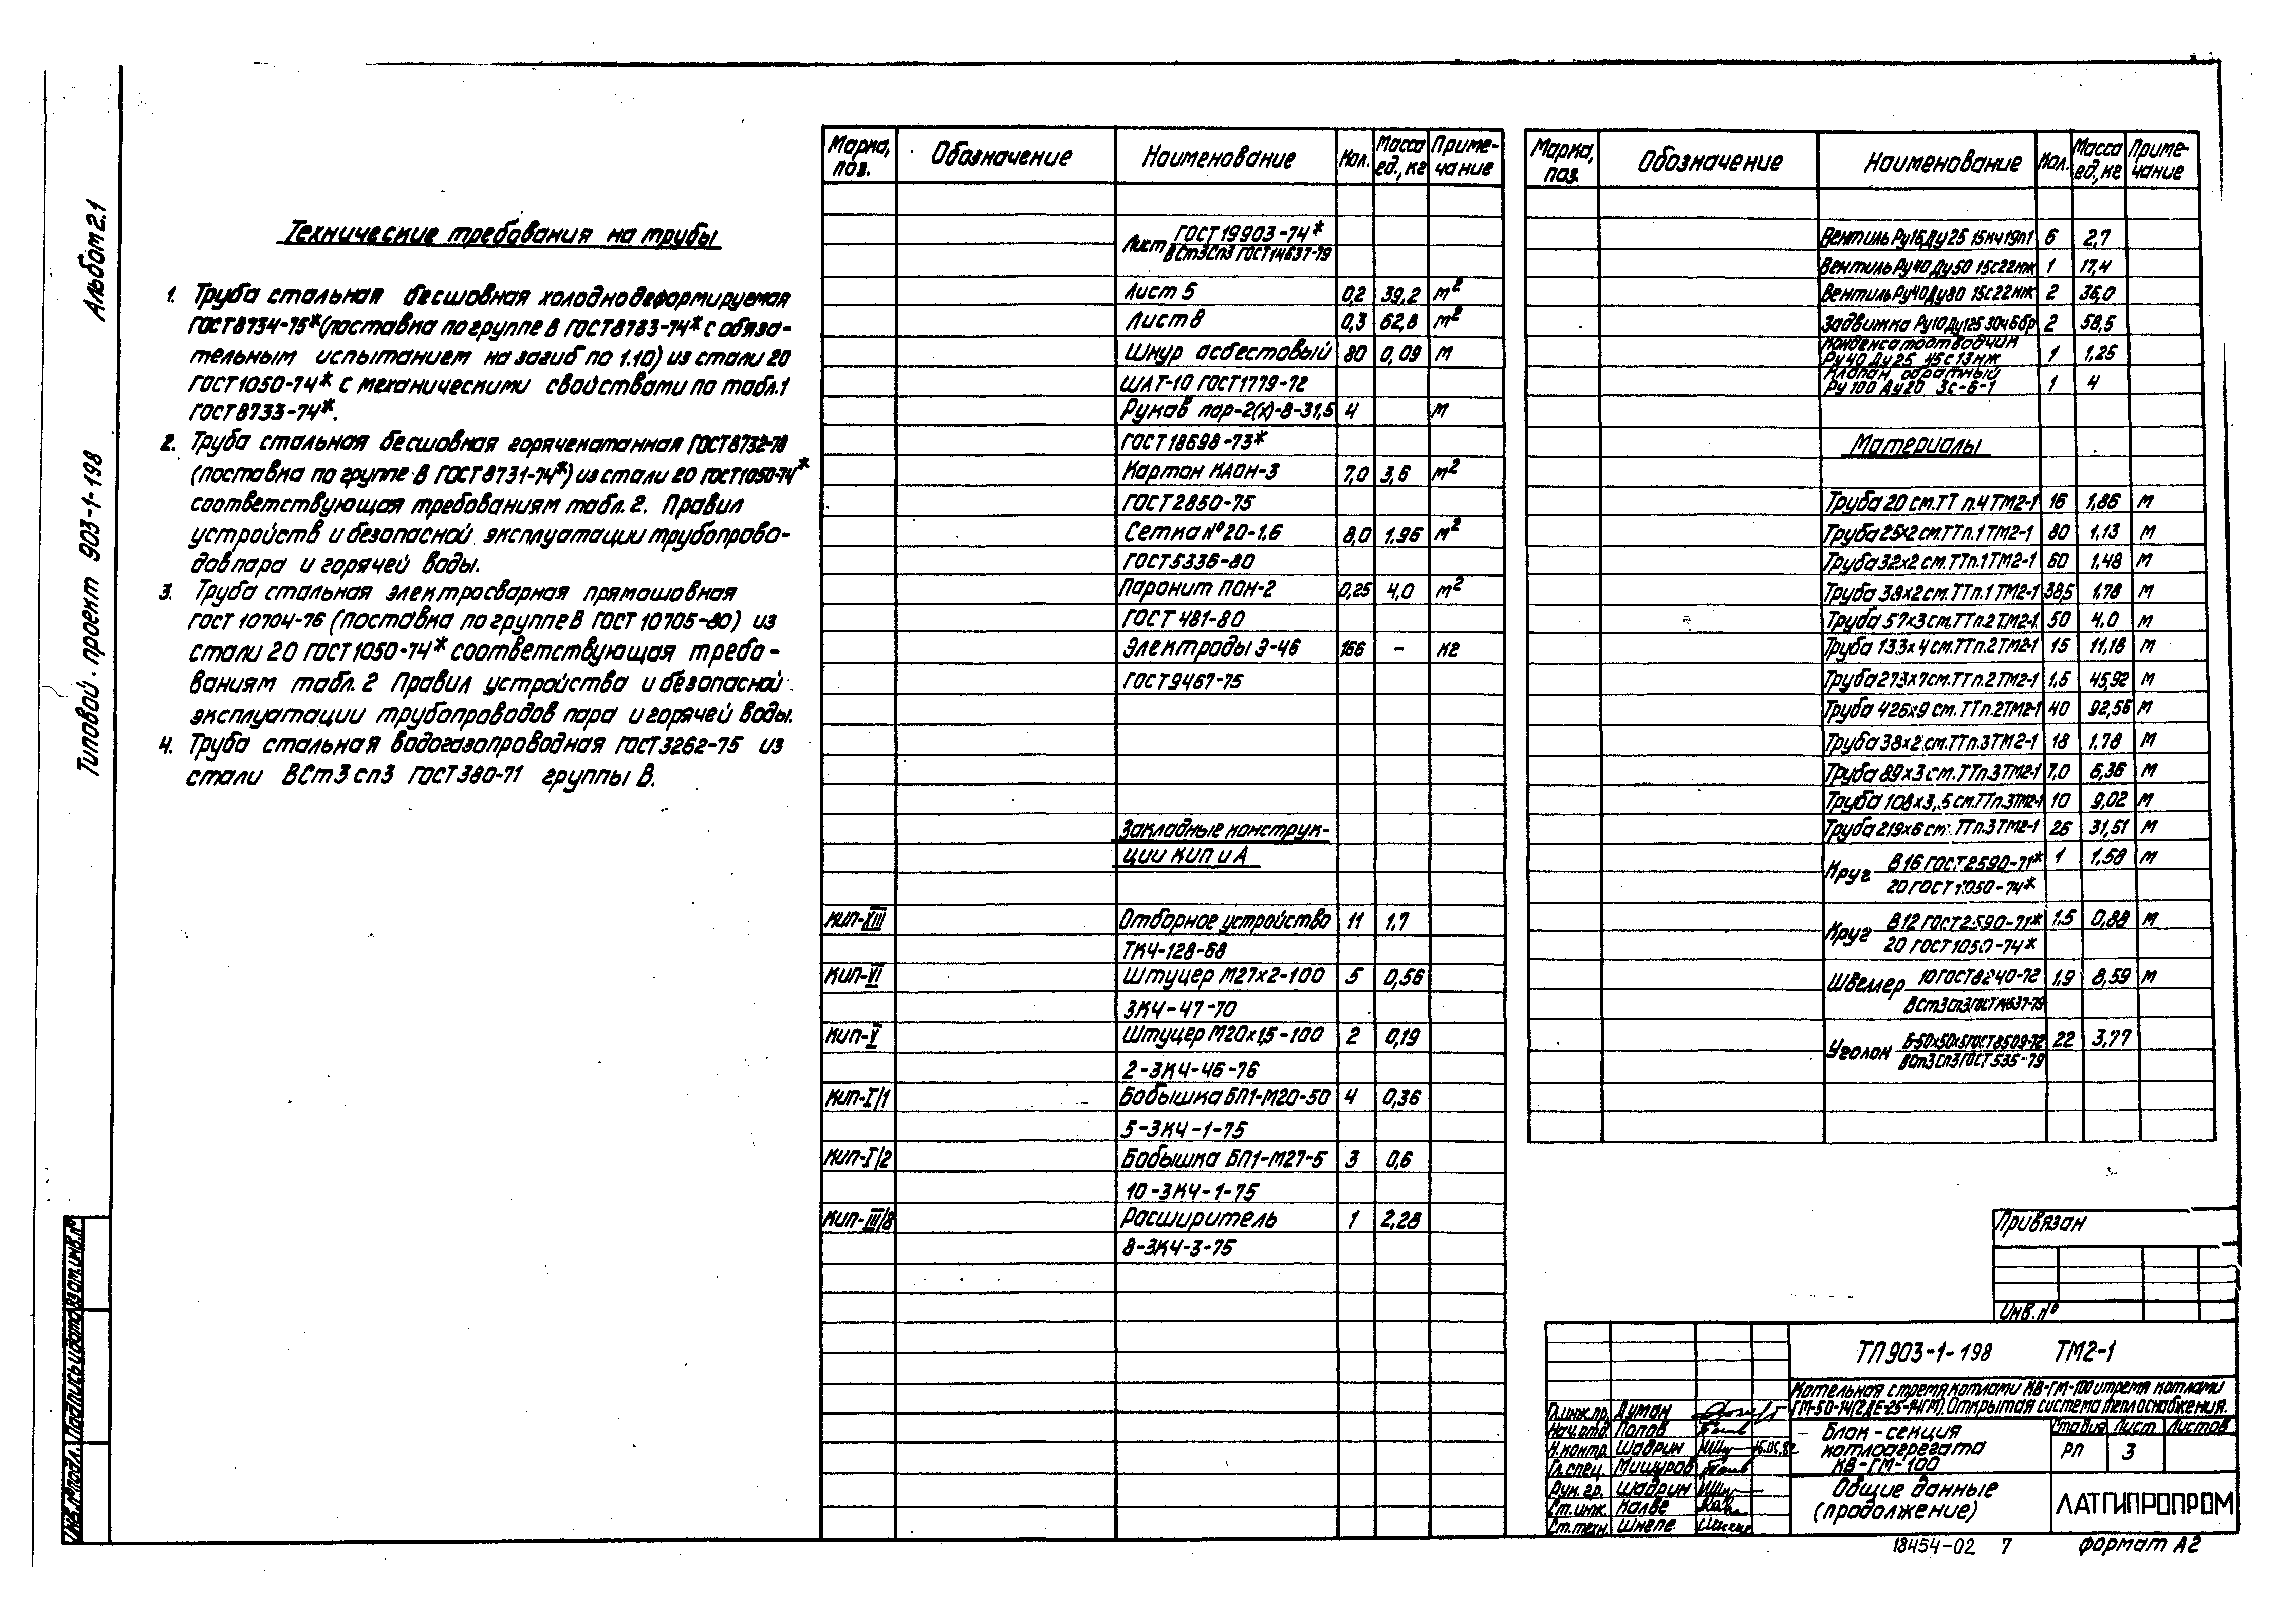 Альбом 2.1
Типовой проект 903-1-198
Технические требования на трубы
1. Труба стальная бесшовная холоднодеформируемая
ГОСТ 8734-75* (поставка по группе В ГОСТ 8733-74* с обяза-
тельным испытанием на загиб по 1.10) из стали 20
ГОСТ 1050-74* с механическими свойствами по табл.1
ГОСТ 8733-74*.
2. Труба стальная бесшовная горячекатанная ГОСТ 8732-78
(поставка по группе В ГОСТ 8731-74*) из стали 20 ГОСТ 1050-74*
соответствующая требованиям табл. 2. Правил
устройств и безопасной эксплуатации трубопрово-
дов пара и горячей воды.
3. Труба стальная электросварная прямошовная
ГОСТ 10704-76 (поставка по группе В ГОСТ 10705-80) из
стали 20 ГОСТ 1050-74* соответствующая требо-
ваниям табл. 2 Правил устройства и безопасной
эксплуатации трубопроводов пара и горячей воды.
4. Труба стальная водогазопроводная ГОСТ 3262-75 из
стали ВСт3сп3 ГОСТ 380-71 группы В.
Марка, поз. Обозначение Наименование Кол. Масса ед., кг Приме-чание
Лист ГОСТ 19903-74*
ВСт3Сп3 ГОСТ 14637-79
Лист 5 0,2 39,2 м²
Лист 8 0,3 62,8 м²
Шнур асбестовый 80 0,09 м
ШАТ-10 ГОСТ 1779-72
Рукав пар-2(х)-8-31,5 4 м
ГОСТ 18698-73*
Картон КАОН-3 7,0 3,6 м²
ГОСТ 2850-75
Сетка №20-1.6 8,0 1,96 м²
ГОСТ 5336-80
Паронит ПОН-2 0,25 4,0 м²
ГОСТ 481-80
Электроды Э-46 166 – кг
ГОСТ 9467-75
Закладные конструк-
ции КИП и А
КИП-XIII Отборное устройство 11 1,7
ТК4-128-68
КИП-VI Штуцер М27х2-100 5 0,56
3К4-47-70
КИП-V Штуцер М20х1,5-100 2 0,19
2-3К4-46-76
КИП-I/1 Бобышка БП1-М20-50 4 0,36
5-3К4-1-75
КИП-I/2 Бобышка БП1-М27-5 3 0,6
10-3К4-1-75
КИП-III/8 Расширитель 1 2,28
8-3К4-3-75
Марка, поз. Обозначение Наименование Кол. Масса ед, кг Приме-чание
Вентиль Ру16Ду25 15кч19п1 6 2,7
Вентиль Ру40 Ду50 15с22нж 1 17,4
Вентиль Ру40 Ду80 15с22нж 2 36,0
Задвижка Ру10 Ду125 30ч6бр 2 58,5
Конденсатоотводчик
Ру40 Ду25 45с13нж 1 1,25
Клапан обратный
Ру100 Ду20 3с-6-1 1 4
Материалы
Труба 20 см.ТТ п.4 ТМ2-1 16 1,86 м
Труба 25х2 см.ТТп.1 ТМ2-1 80 1,13 м
Труба 32х2 см.ТТп.1 ТМ2-1 60 1,48 м
Труба 38х2 см.ТТп.1 ТМ2-1 38,5 1,78 м
Труба 57х3 см.ТТп.2 ТМ2-1 50 4,0 м
Труба 133х4 см.ТТп.2 ТМ2-1 15 11,18 м
Труба 273х7 см.ТТп.2 ТМ2-1 1,5 45,92 м
Труба 426х9 см.ТТп.2 ТМ2-1 40 92,56 м
Труба 38х2 см.ТТп.3 ТМ2-1 18 1,78 м
Труба 89х3 см.ТТп.3 ТМ2-1 7,0 6,36 м
Труба 108х3,5 см.ТТп.3 ТМ2-1 10 9,02 м
Труба 219х6 см. ТТп.3 ТМ2-1 26 31,51 м
Круг В16 ГОСТ 2590-71* 1 1,58 м
20 ГОСТ 1050-74*
Круг В12 ГОСТ 2590-71* 1,5 0,88 м
20 ГОСТ 1050-74*
Швеллер 10 ГОСТ 8240-72 1,9 8,59 м
ВСт3Сп3 ГОСТ 14637-79
Уголок Б-50х50х5 ГОСТ 8509-72 22 3,77
ВСт3Сп3 ГОСТ 535-79
Привязан
Инв. №
ТП 903-1-198 ТМ2-1
Котельная с тремя котлами КВ-ГМ-100 и тремя котлами
ГМ-50-14 (2ДЕ-25-14ГМ). Открытая система теплоснабжения.
Гл.инж.пр. Думан
Нач.отд. Попов
Н.контр. Шадрин
Гл.спец. Мишуров
Рук. гр. Шадрин
Ст. инж. Калве
Ст.техн. Шнепе
Блок-секция
котлоагрегата
КВ-ГМ-100
Стадия Лист Листов
РП 3
Общие данные
(продолжение)
ЛАТГИПРОПРОМ
18454-02 7 формат А2
Инв.№подл. Подпись и дата Взам.инв.№